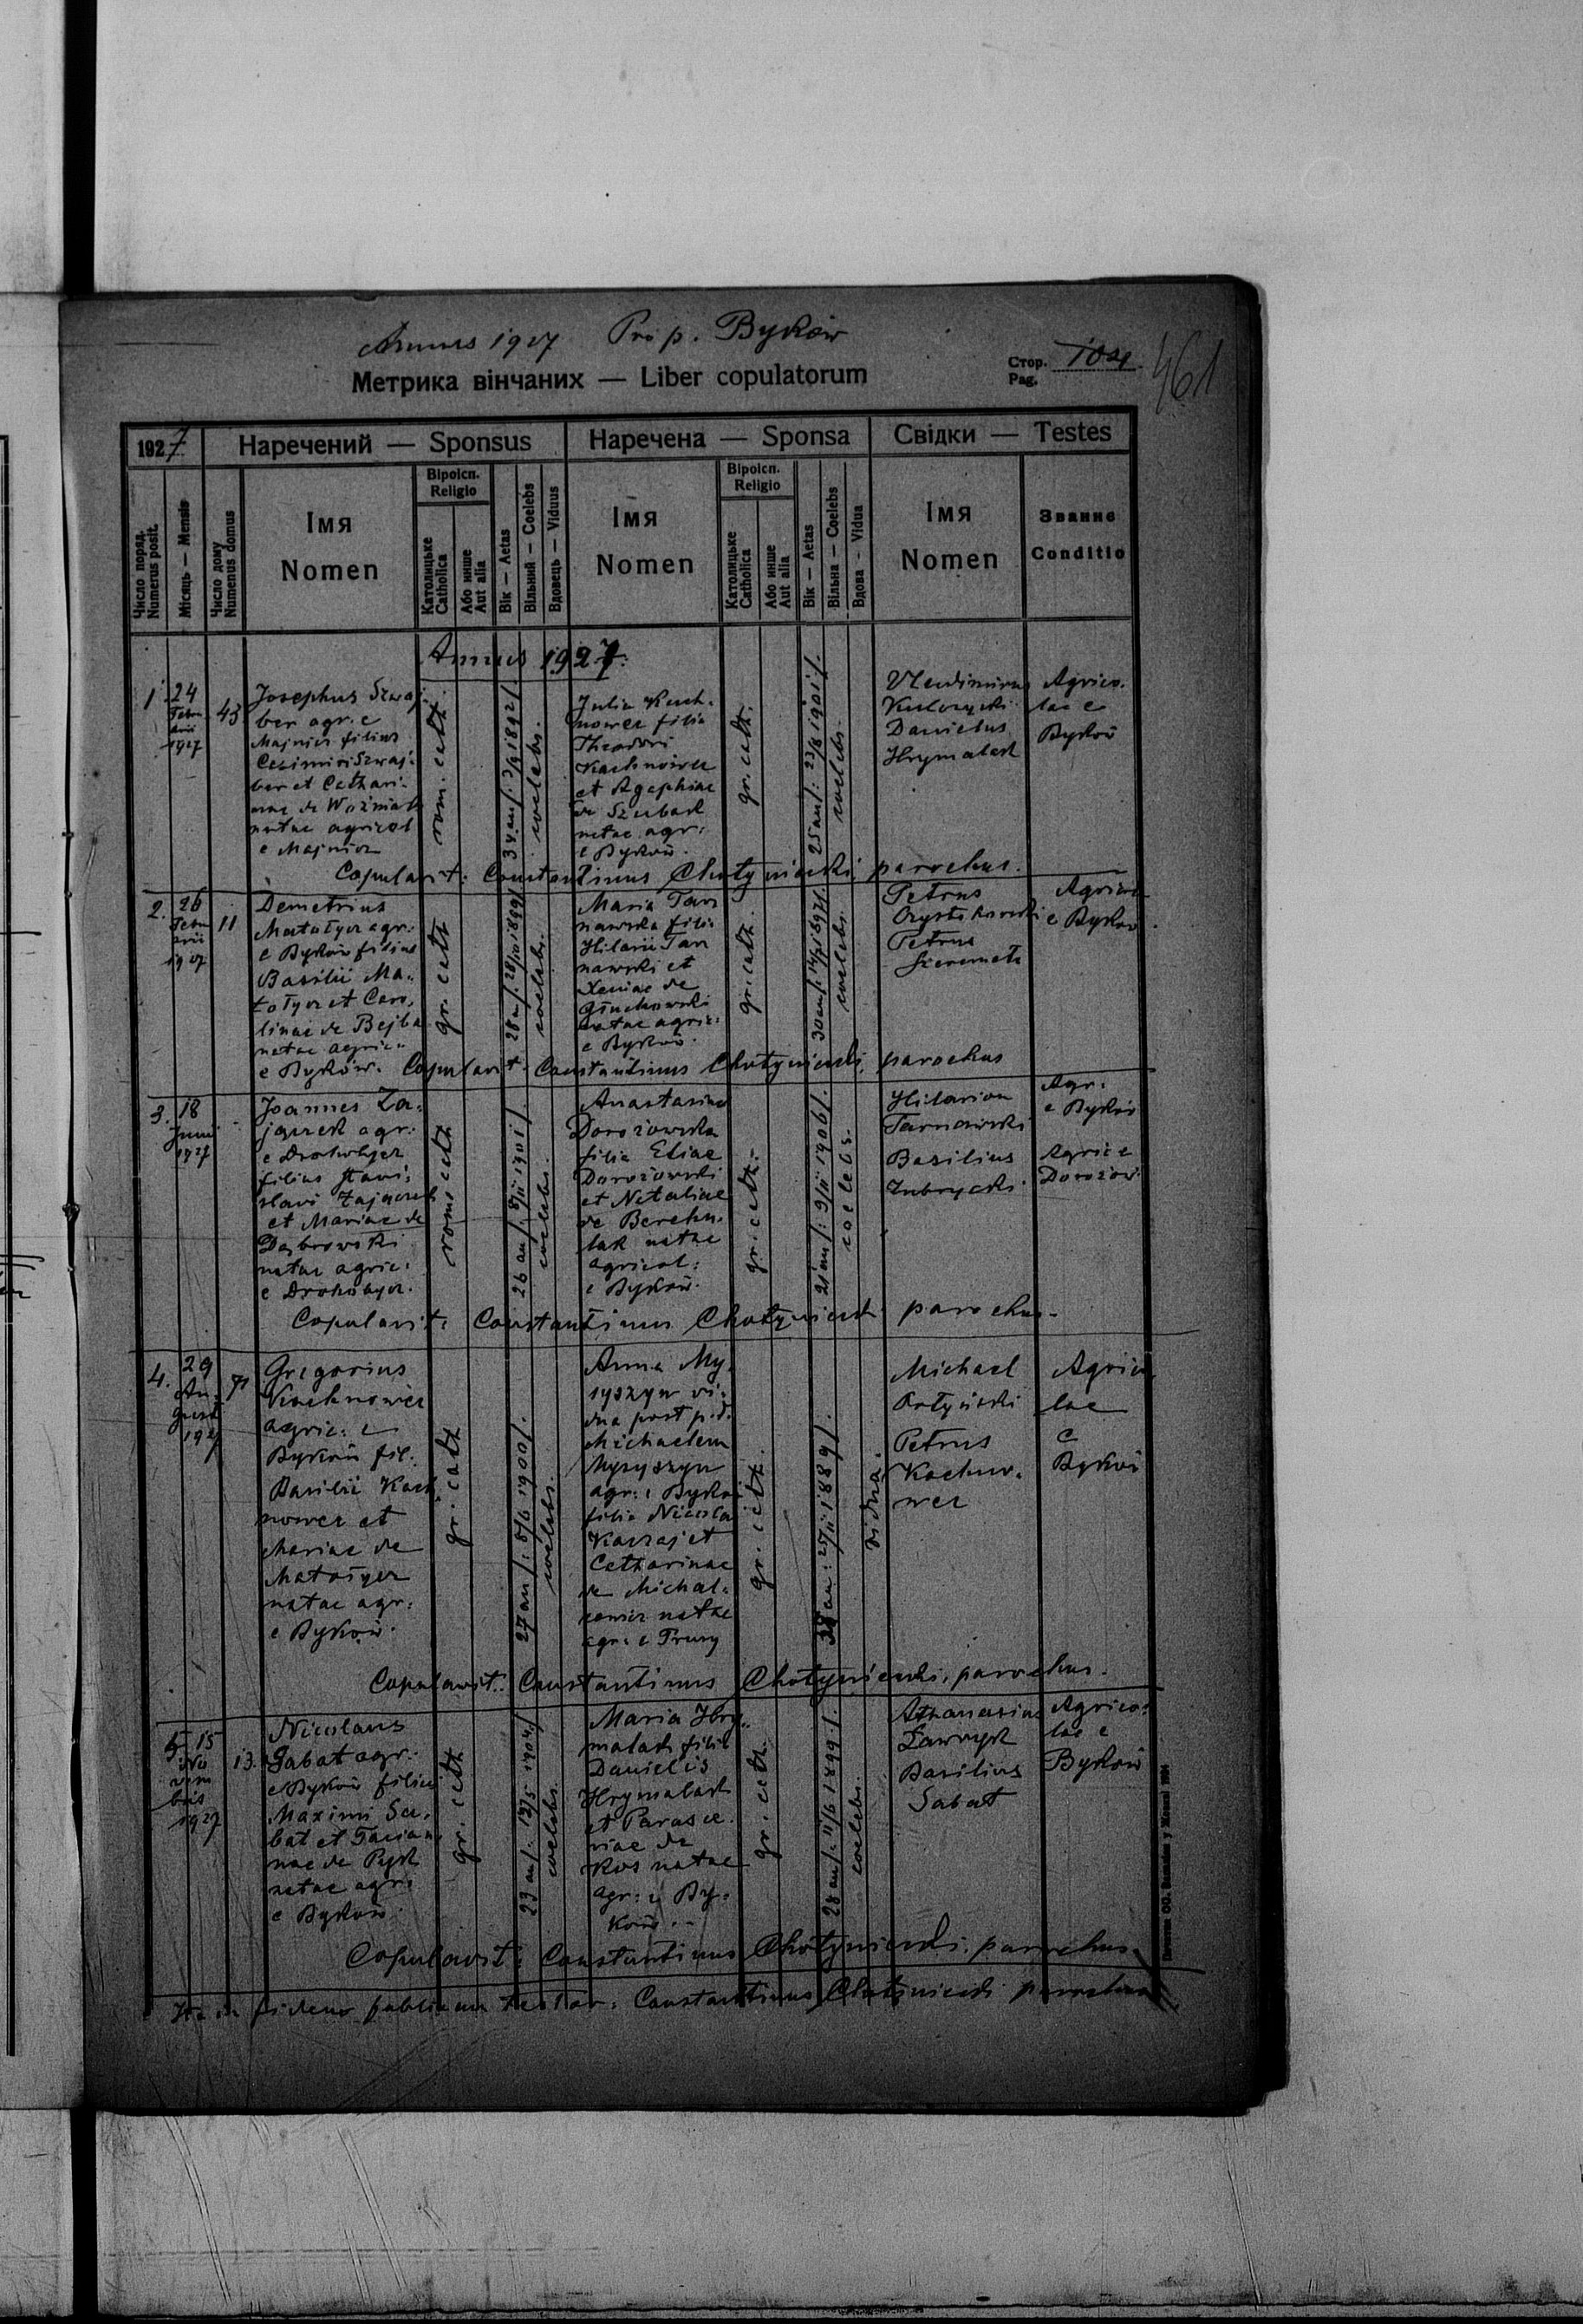 Annus 1927 Pro p. Byków
Метрика вінчаних — Liber copulatorum
Стор.
Pag.
104
461
1927
Наречений — Sponsus
Наречена — Sponsa
Свідки — Testes
Число поряд.
Numerus posit.
Місяць — Mensis
Число дому
Numenus domus
Імя
Nomen
Віроісп.
Religio
Католицьке
Catholica
Або инше
Aut alia
Вік — Aetas
Вільний — Coelebs
Вдовець — Viduus
Імя
Nomen
Віроісп.
Religio
Католицьке
Catholica
Або инше
Aut alia
Вік — Aetas
Вільна — Coelebs
Вдова - Vidua
Імя
Nomen
Званнє
Conditio
Annus 1927.
1.
24
Febru
arii
1927
43
Josephus Szwaj-
ber agr. e
Majnicz filius
Casimiri Szwaj-
ber et Cathari-
nae de Woźniak
natae agricol
e Majnicz
rom. cath.
34 an/. 3/9 1892/.
coelebs.
Julia Kach-
nowez filia
Theodori
Kachnowez
et Agaphiae
de Szubak
natae agr:
e Byków.
gr. cath.
25 an/: 23/6 1901/.
coelebs.
Vladimirus
Kulczycki
Daniełus
Hrymalak
Agrico-
lae e
Byków
Copulavit: Constantinus Chotyniecki parochus.
2.
26
Febru
arii
1927
11
Demetrius
Matołycz agr:
e Byków filius
Basilii Ma-
tołycz et Caro-
linae de Bejba
natae agric:
e Byków.
gr. cath
28 a/. 28/10 1899/
coelebs.
Maria Tar
nawska filia
Hilarii Tar
nawski et
Xeniae de
Głuchowski
natae agric:
e Byków.
gr. cath.
30 an/. 14/7 1897/.
coelebs.
Petrus
Petrus
Szeremeta
Agricol
e Byków
Copulavit Constantinus Chotyniecki, parochus
3.
18
Junii
1927
Joannes Za-
jączek agr:
e Drohobycz
filius Stani-
slavi Zajączek
et Mariae de
Dąbrowski
natae agric:
e Drohobycz.
rom. cath
26 an/. 8/11 1901/.
coelebs.
Anastasina
Dorożowska
filia Eliae
Dorożowski
et Nataliae
de Berehu-
lak natae
agricol:
e Byków.
gr. cath.
21 an/: 9/11 1906/.
coelebs.
Hilarion
Tarnawski
Basilius
Zubrycki
Agr:
e Byków
Agric e
Dorożów
Copulavit: Constantinus Chotyniecki parochus.
4.
29
Au-
gusti
1927
71
Gregorius
Kachnowez
agric: e
Byków fil.
Basilii Kach
nowez et
Mariae de
Matołycz
natae agr:
e Byków.
gr. cath
27 an/: 8/6 1900/.
coelebs.
Anna My-
syszyn vi-
dua post p.d.
Michaelem
Mysyszyn
agr: e Byków
filia Nicolai
Kaszaj et
Catharinae
de Michal-
cewicz natae
agr: e Prusy
gr. cath.
38 an: 25/11 1889/.
vidua.
Michael
Petrus
Kachno-
wez
Agrico
lae
e
Byków
Copulavit: Constantinus Chotyniecki, parochus.
5.
15
No
vem
bris
1927
13.
Nicolaus
Sabat agr:
e Byków filius
Maximi Sa-
bat et Tacian-
nae de Pysk
natae agr:
e Byków.
gr. cath
23 an/. 12/5 1904/
coelebs.
Maria Hry-
malak filia
Danielis
Hrymalak
et Parasce-
viae de
Kos natae
agr: e By-
ków.
gr. cath.
28 an/: 11/6 1899/.
coelebs.
Athanasius
Ławryk
Basilius
Sabat
Agrico-
lae e
Byków
Copulavit: Constantinus Chotyniecki, parochus.
Ita in fidem publicam testor: Constantinus Chotyniecki parochus